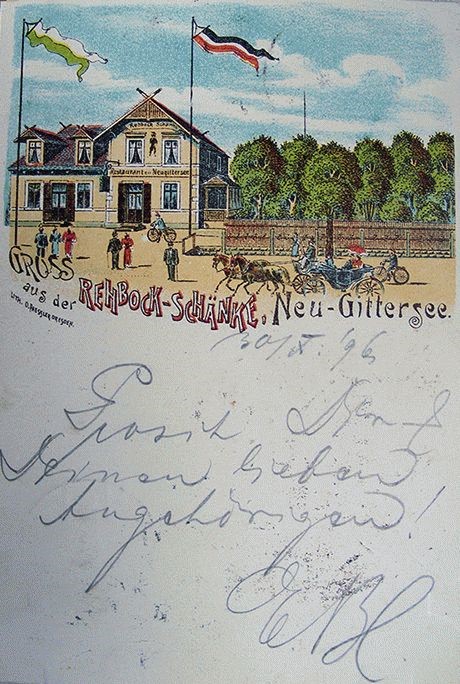 Rehbock Schänke
Restaurant zu Neugittersee
GRUSS
aus der REHBOCK-SCHÄNKE, Neu-Gittersee.
LITH. O. DRESSLER DRESDEN.
30/X. 96
Prosit Dir &
Deinen lieben
Angehörigen!